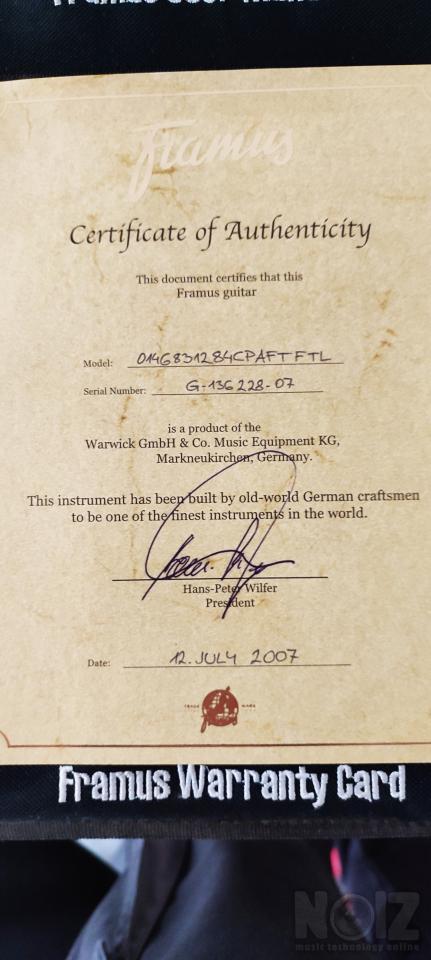 Framus
Certificate of Authenticity
This document certifies that this
Framus guitar
Model: 0146831284CPAFTFTL
Serial Number: G-136228-07
is a product of the
Warwick GmbH & Co. Music Equipment KG,
Markneukirchen, Germany.
This instrument has been built by old-world German craftsmen
to be one of the finest instruments in the world.
Hans-Peter Wilfer
President
Date: 12. JULY 2007
TRADE MARK
Framus Warranty Card
NOIZ
music technology online